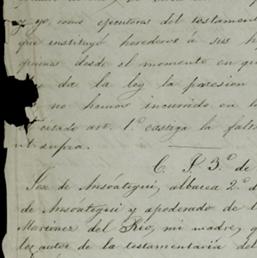 y yo, como ejecutora del testament
que instituyó herederos á sus h
gramas desde el momento en qu
da la ley la posesion
no hemos incurrido en l
citado art. 1.º castiga la falt
ut supra.
C. P. 3.º de
José de Ansoategui, albacea 2.º d
de Ansoategui y apoderado de l
Martinez del Rio, mi madre, q
los autos de la testamentaria del